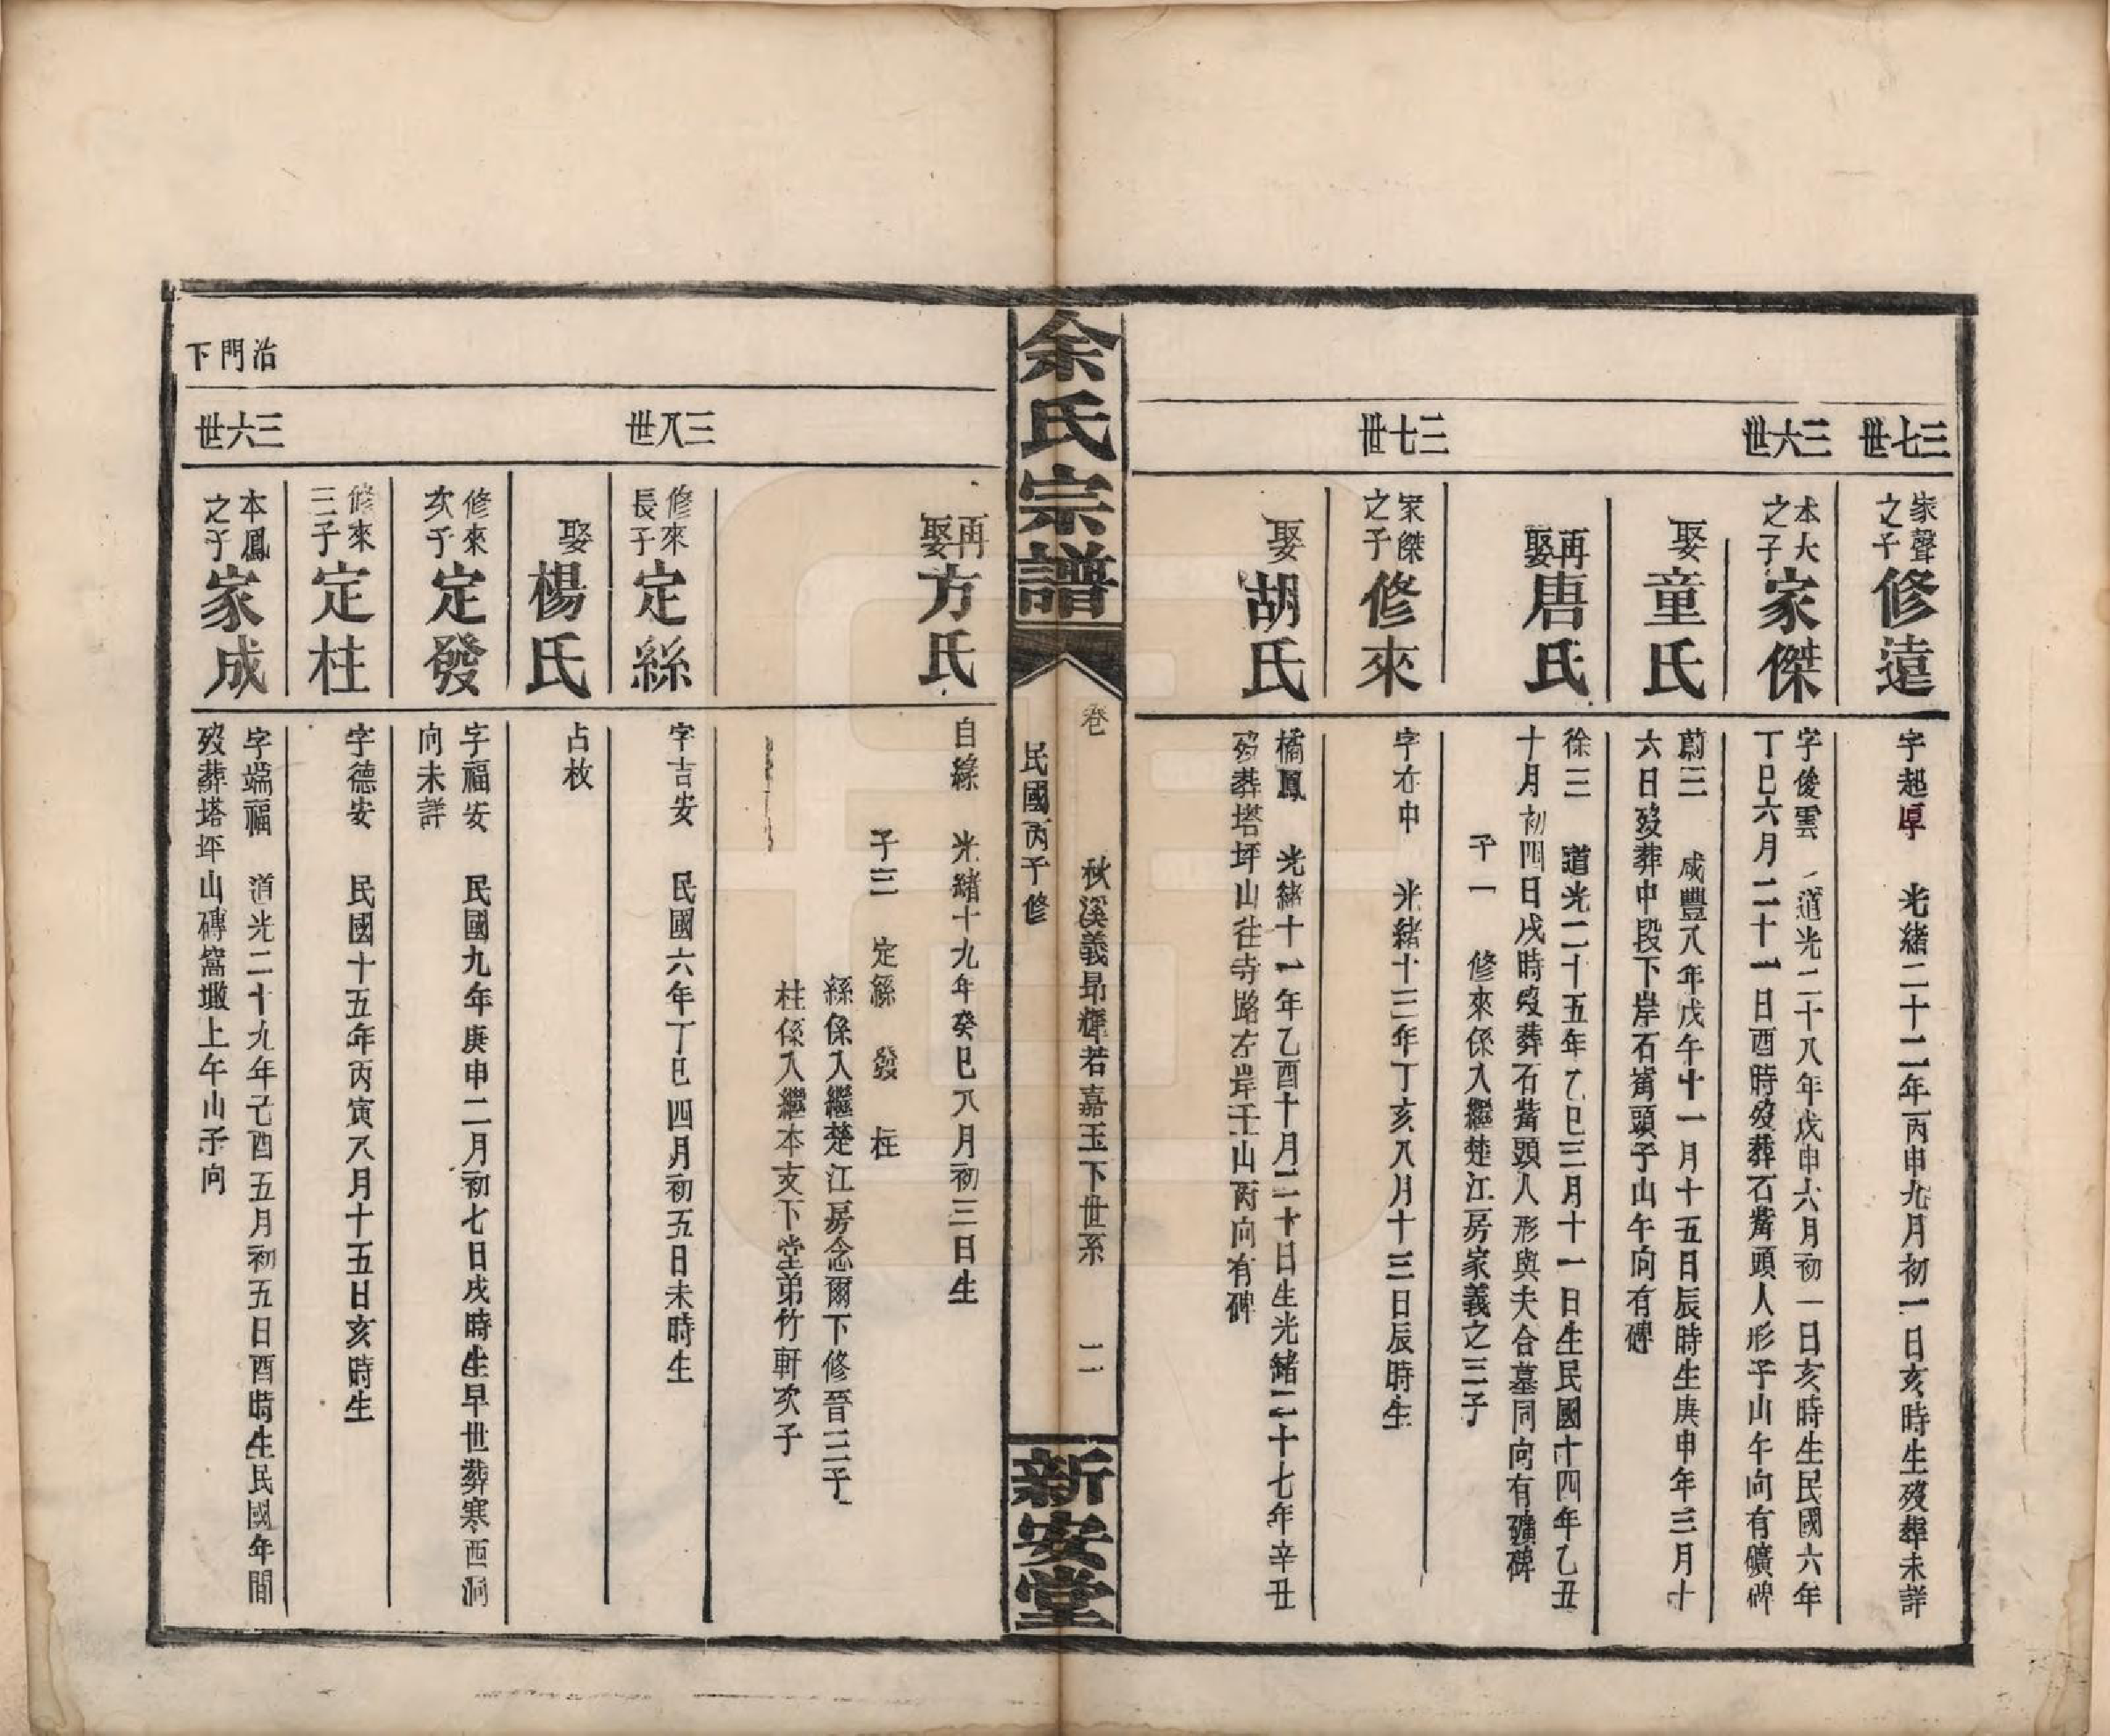 三七世
家聲
之子
修遠
字起厚 光緒二十二年丙申九月初一日亥時生歿葬未詳
三六世
本大
之子
家傑
字俊雲 道光二十八年戊申六月初一日亥時生民國六年
丁巳六月二十一日酉時歿葬石嘴頭人形子山午向有礦碑
娶
童氏
蔚三 咸豐八年戊午十一月十五日辰時生庚申年三月十
六日歿葬中段下岸石嘴頭子山午向有碑
再
娶
唐氏
徐三 道光二十五年乙巳三月十一日生民國十四年乙丑
十月初四日戌時歿葬石嘴頭人形與夫合墓同向有礦碑
子一 修來係入繼楚江房家義之三子
三七世
家傑
之子
修來
字亦中 光緒十三年丁亥八月十三日辰時生
娶
胡氏
橘鳳 光緒十一年乙酉十月二十日生光緒二十七年辛丑
歿葬塔坪山往寺路左岸壬山丙向有碑
余氏宗譜
卷 秋溪義昂輝若嘉玉下世系 二
民國丙子修
新安堂
再
娶
方氏
自綠 光緒十九年癸巳八月初三日生
子三 定絲 發 柱
絲係入繼楚江房念爾下修晉三子
柱係入繼本支下堂弟竹軒次子
三八世
修來
長子
定絲
字吉安 民國六年丁巳四月初五日未時生
娶
楊氏
占枚
修來
次子
定發
字福安 民國九年庚申二月初七日戌時生早世葬寒西洞
向未詳
修來
三子
定柱
字德安 民國十五年丙寅八月十五日亥時生
治門下
三六世
本鳳
之子
家成
字端福 道光二十九年己酉五月初五日酉時生民國年間
歿葬塔坪山磚窩墩上午山子向